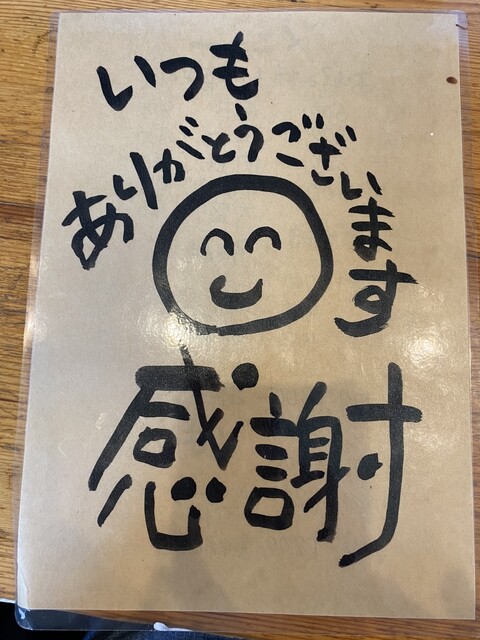 いつも
ありがとうございます
感謝